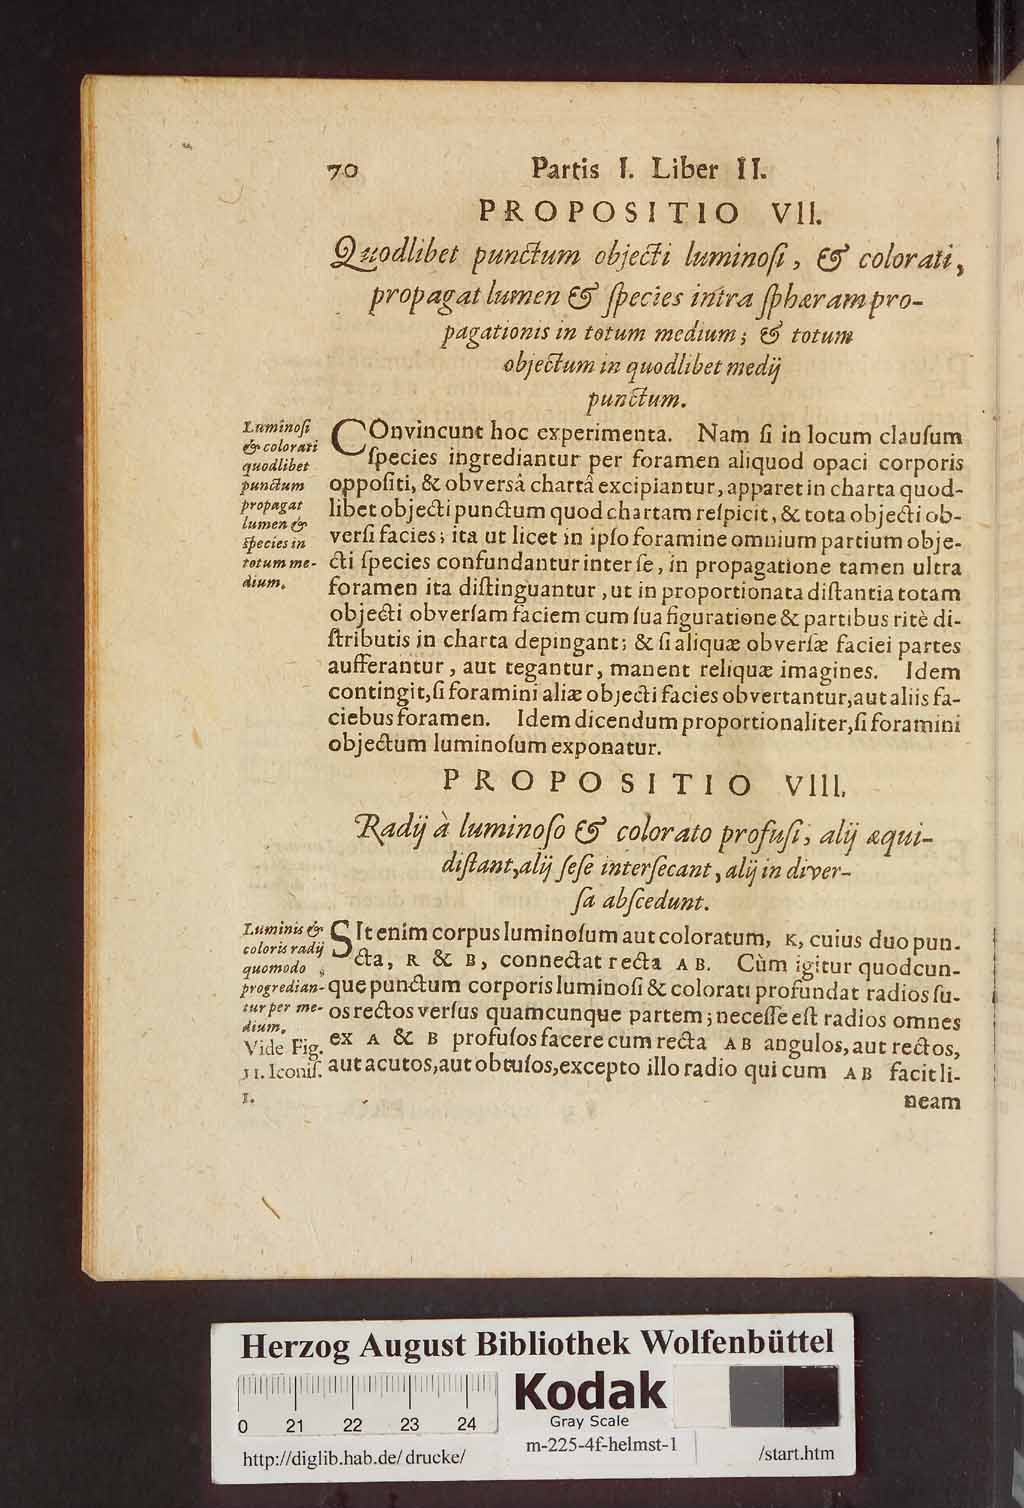 70 Partis I. Liber II.
PROPOSITIO VII.
Quodlibet punctum objecti luminoſi, & colorati,
propagat lumen & ſpecies intra ſphæram pro-
pagationis in totum medium; & totum
objectum in quodlibet medij
punctum.
Luminoſi
& colorati
quodlibet
punctum
propagat
lumen &
ſpecies in
totum me-
dium.
COnvincunt hoc experimenta. Nam ſi in locum clauſum
ſpecies ingrediantur per foramen aliquod opaci corporis
oppoſiti, & obversâ chartâ excipiantur, apparet in charta quod-
libet objecti punctum quod chartam reſpicit, & tota objecti ob-
verſi facies; ita ut licet in ipſo foramine omnium partium obje-
cti ſpecies confundantur inter ſe, in propagatione tamen ultra
foramen ita diſtinguantur, ut in proportionata diſtantia totam
objecti obverſam faciem cum ſua figuratione & partibus ritè di-
ſtributis in charta depingant; & ſi aliquæ obverſæ faciei partes
aufferantur, aut tegantur, manent reliquæ imagines. Idem
contingit, ſi foramini aliæ objecti facies obvertantur, aut aliis fa-
ciebus foramen. Idem dicendum proportionaliter, ſi foramini
objectum luminoſum exponatur.
PROPOSITIO VIII.
Radij à luminoſo & colorato profuſi, alij æqui-
diſtant, alij ſeſe interſecant, alij in diver-
ſa abſcedunt.
Luminis &
coloris radij
quomodo
progredian-
tur per me-
dium.
Vide Fig.
31. Iconiſ.
I.
SIt enim corpus luminoſum aut coloratum, K, cuius duo pun-
cta, R & B, connectat recta A B. Cùm igitur quodcun-
que punctum corporis luminoſi & colorati profundat radios ſu-
os rectos verſus quamcunque partem; neceſſe eſt radios omnes
ex A & B profuſos facere cum recta A B angulos, aut rectos,
aut acutos, aut obtuſos, excepto illo radio qui cum A B facit li-
neam
Herzog August Bibliothek Wolfenbüttel
Kodak
Gray Scale
0 21 22 23 24
http://diglib.hab.de/drucke/ m-225-4f-helmst-1 /start.htm